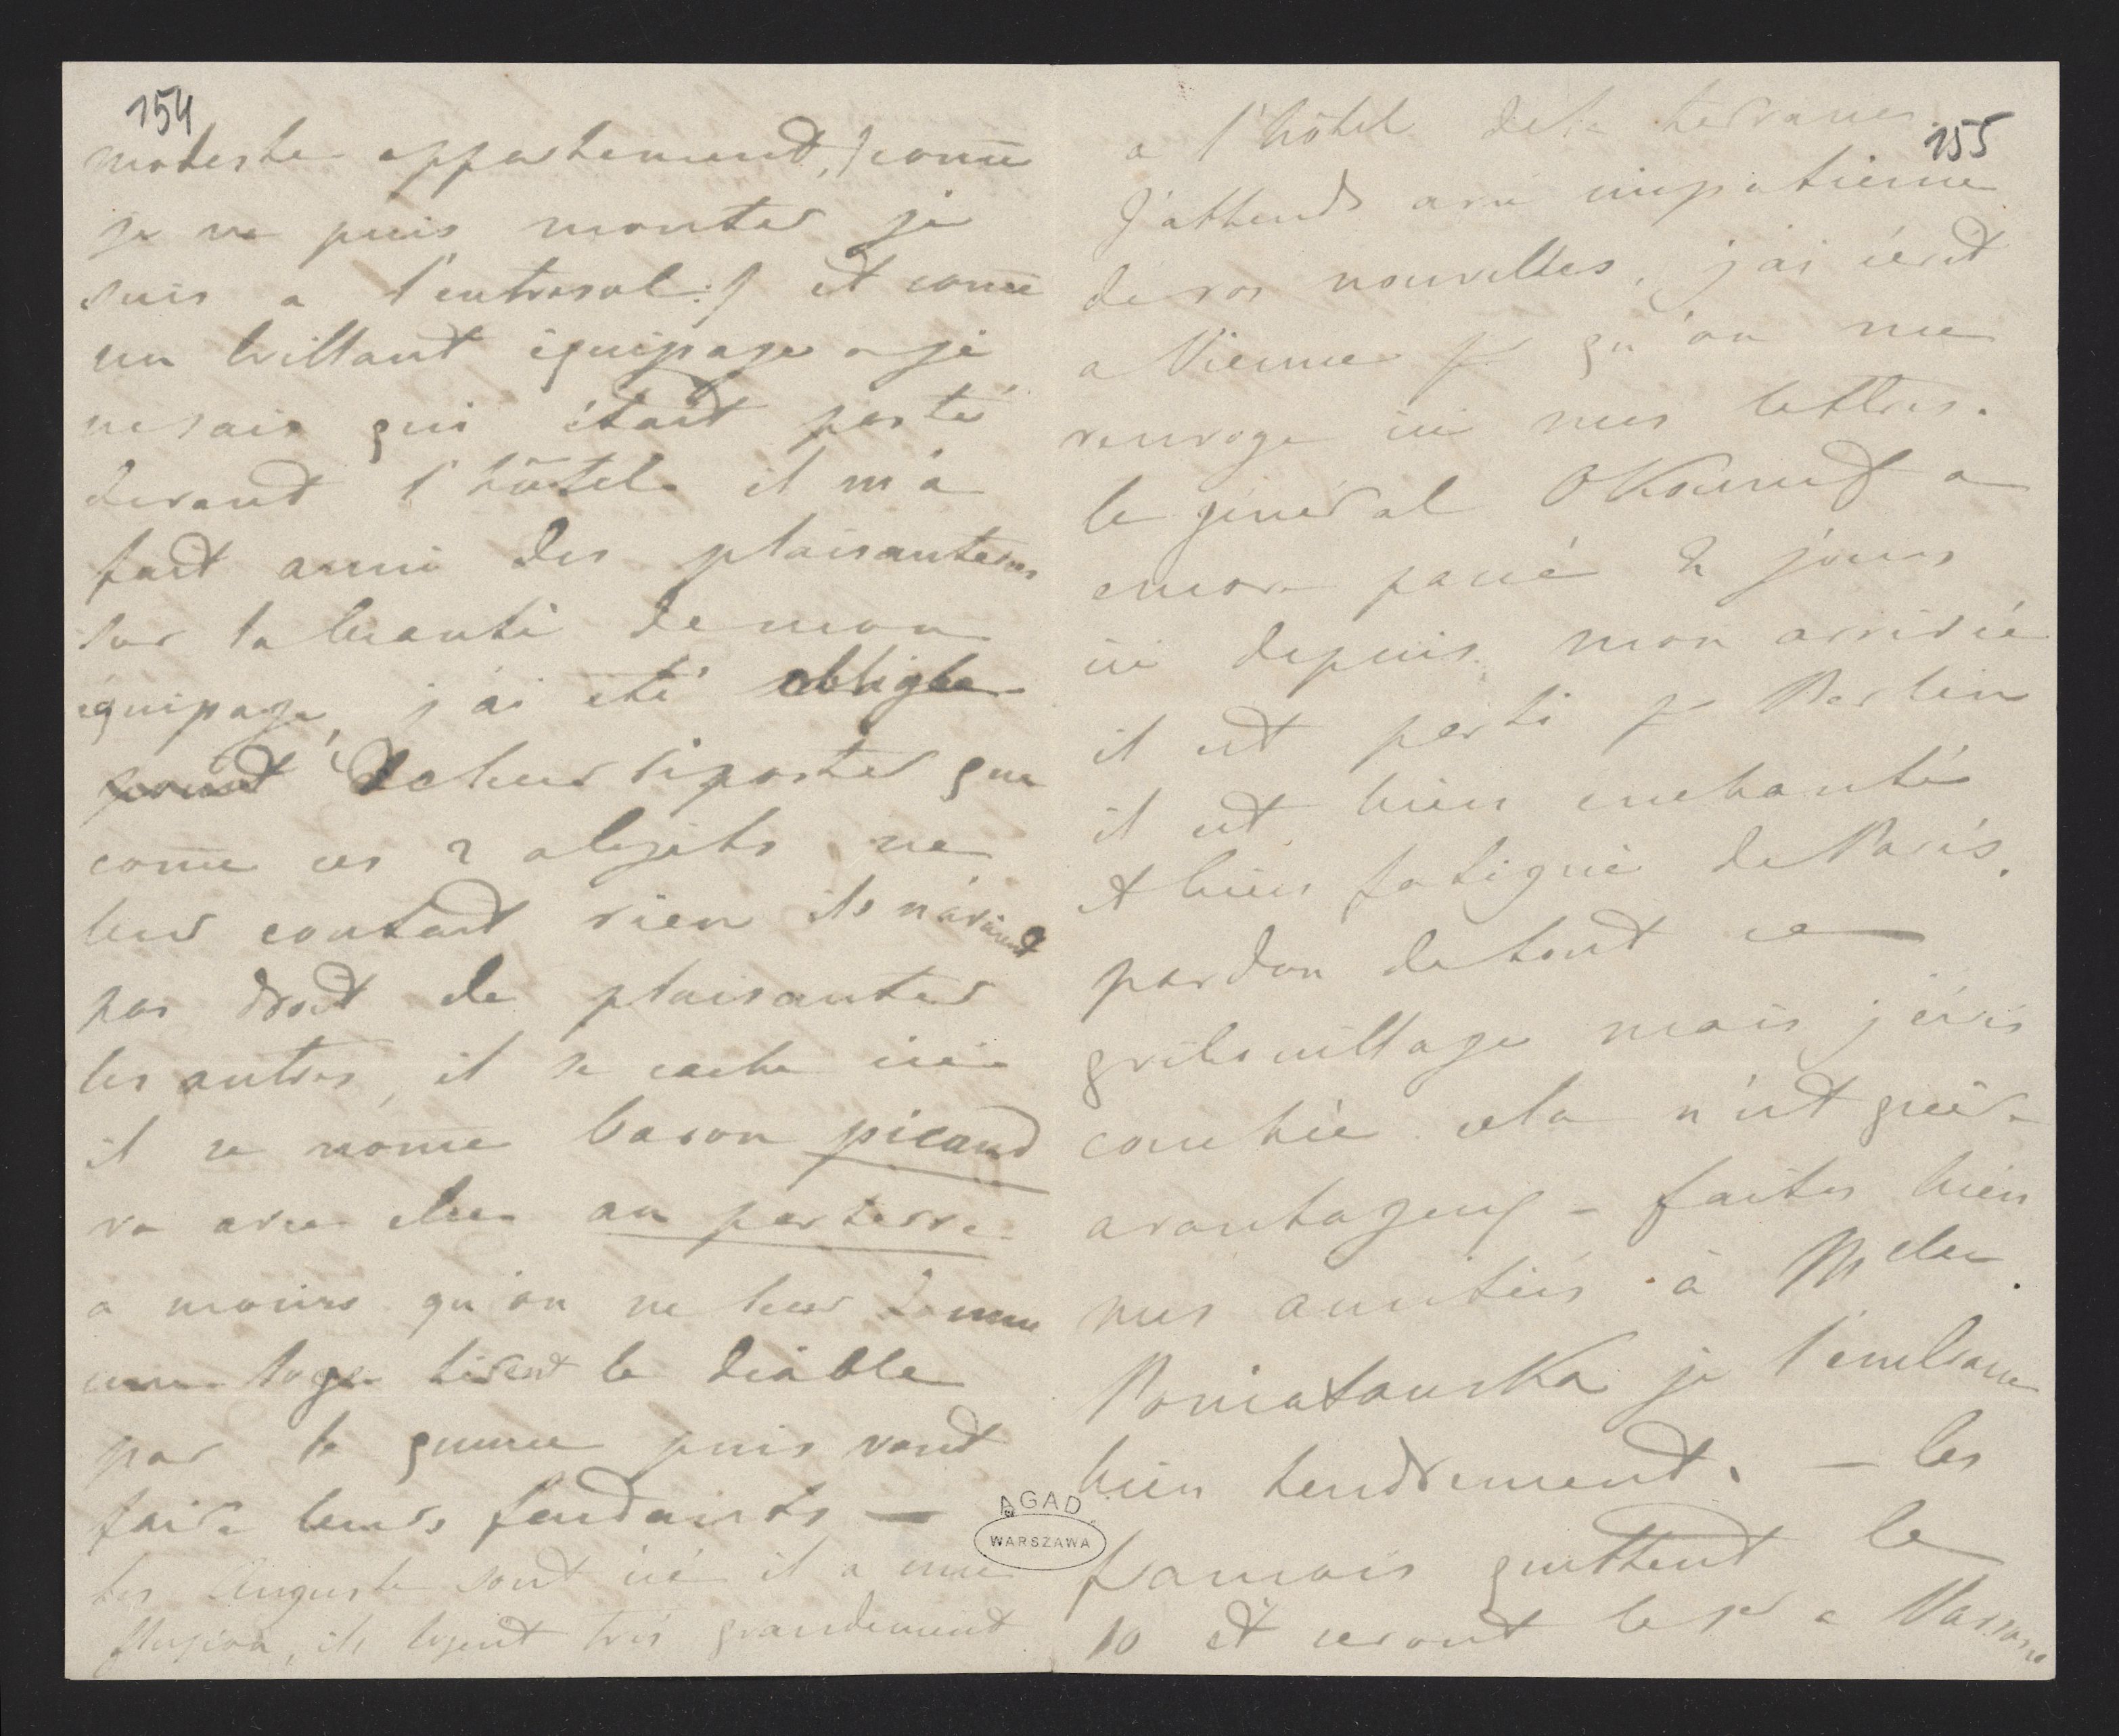 154
modeste appartement, /:come
je ne puis monter je
suis a l'entresol:/ et come
un brillant équipage a je
ne sais qui était posté
devand l'hôtel il m'a
fait aussi des plaisanteries
sur la beauté de mon
équipage, j'ai été obligée
de leur riposter que
come ces 2 objets ne
leur coutant rien ils n'avaient
pas droit de plaisanter
les autres, il se cache ici
il se nome baron picard
va avec elle au parterre
a moins qu'on ne leur donne
une loge tirent le diable
par la queue puis vont
faire leurs fendaints —
les Auguste sont ici il a une
mission, ils logent très grandement
155
a l'hôtel de la terrasse
J'attends avec impatience
de vos nouvelles, j'ai écrit
a Vienne pr qu'on me
renvoye ici mes lettres.
le général Okounef a
encore passé 2 jours
ici depuis mon arrivée
il est parti pr Berlin
il est bien enchanté
et bien fatigué de Paris.
pardon de tout ce
gribouillage mais j'écris
couchée cela n'est guère
avantageux – faites bien
mes amitiés à Mdme
Poniatowska je l'embrasse
bien tendrement. — les
francois quittent le
10 et seront le a Varsovie
AGAD
WARSZAWA